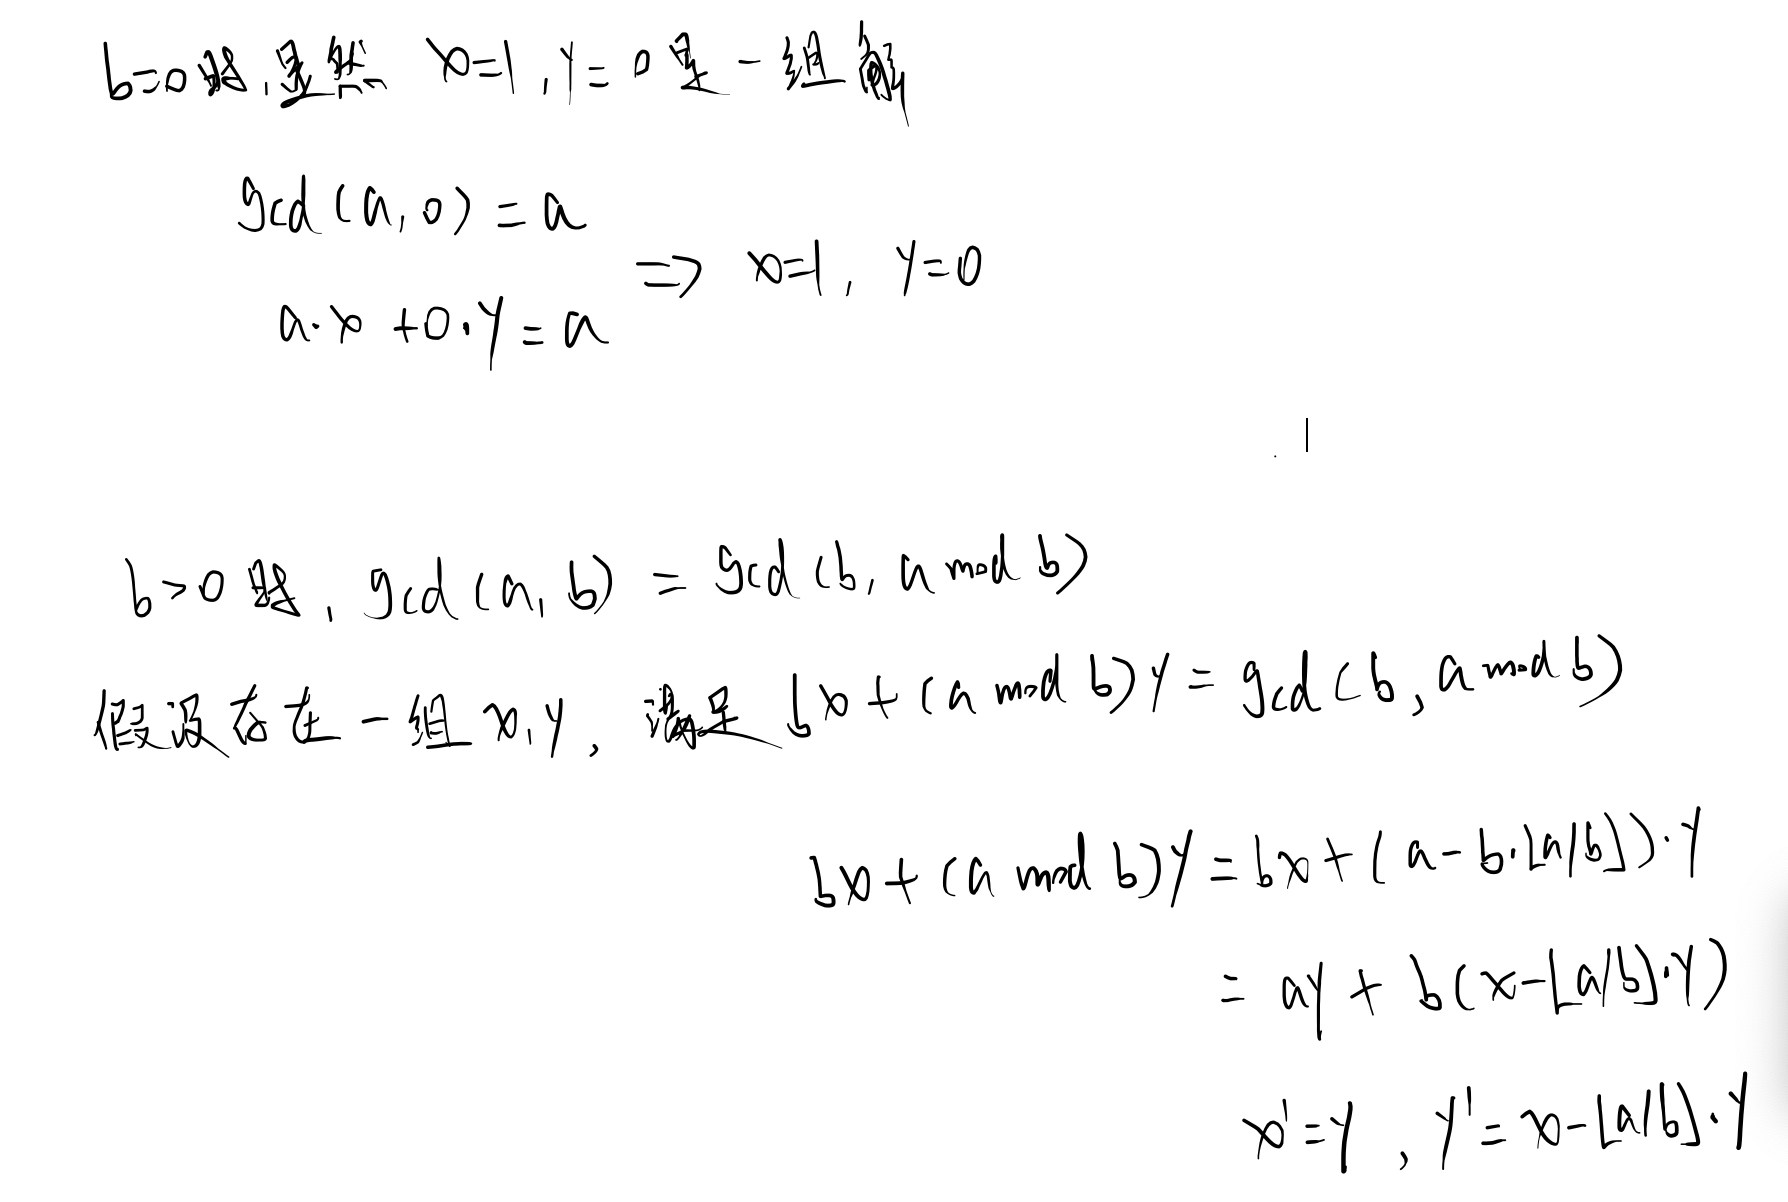 b=0时,显然 x=1,y=0是一组解
gcd(a,0)=a
⇒ x=1, y=0
a·x+0·y=a
b>0时,gcd(a,b) = gcd(b, a mod b)
假设存在一组 x,y, 满足 bx+(a mod b)y = gcd(b, a mod b)
bx+(a mod b)y = bx+(a-b·⌊a/b⌋)·y
= ay + b(x-⌊a/b⌋·y)
x'=y , y'=x-⌊a/b⌋·y